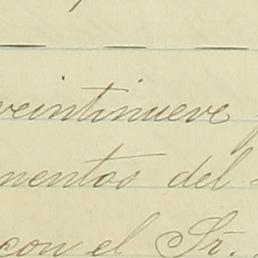 veintinueve
mentos del
con el Sr.